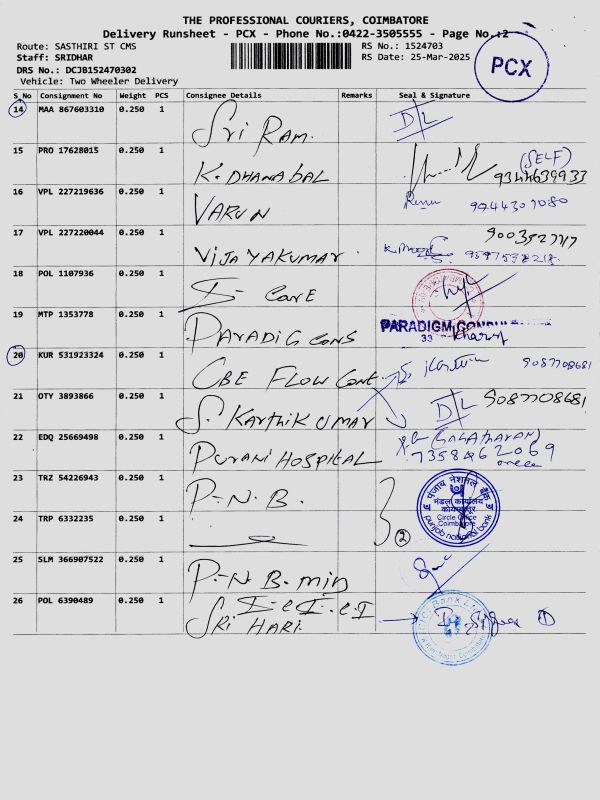 THE PROFESSIONAL COURIERS, COIMBATORE
Delivery Runsheet - PCX - Phone No.:0422-3505555 - Page No.:2
Route: SASTHIRI ST CMS
RS No.: 1524703
Staff: SRIDHAR
RS Date: 25-Mar-2025
PCX
DRS No.: DCJB152470302
Vehicle: Two Wheeler Delivery
S_No Consignment No Weight PCS Consignee Details Remarks Seal & Signature
14 MAA 867603310 0.250 1 Sri RAM. D/L
15 PRO 17628015 0.250 1 K. DHANABAL (SELF) 9344639933
16 VPL 227219636 0.250 1 VARUN 9944307080
17 VPL 227220044 0.250 1 VIJAYAKUMAR 9597598218
18 POL 1107936 0.250 1 CARE
19 MTP 1353778 0.250 1 PARADIG CONS PARADIGM
20 KUR 531923324 0.250 1 CBE FLOW CONT 9087708681
21 OTY 3893866 0.250 1 S. KARTHIK UMAR D/L 9087708681
22 EDQ 25669498 0.250 1 PURANI HOSPITAL 7358462069
23 TRZ 54226943 0.250 1 P.N.B. पंजाब नैशनल बैंक
मंडल कार्यालय
कोयम्बत्तूर
Circle Office
Coimbatore
punjab national bank
24 TRP 6332235 0.250 1 2
25 SLM 366907522 0.250 1 P.N.B. min
26 POL 6390489 0.250 1 SRI HARI. ICICI Bank Ltd